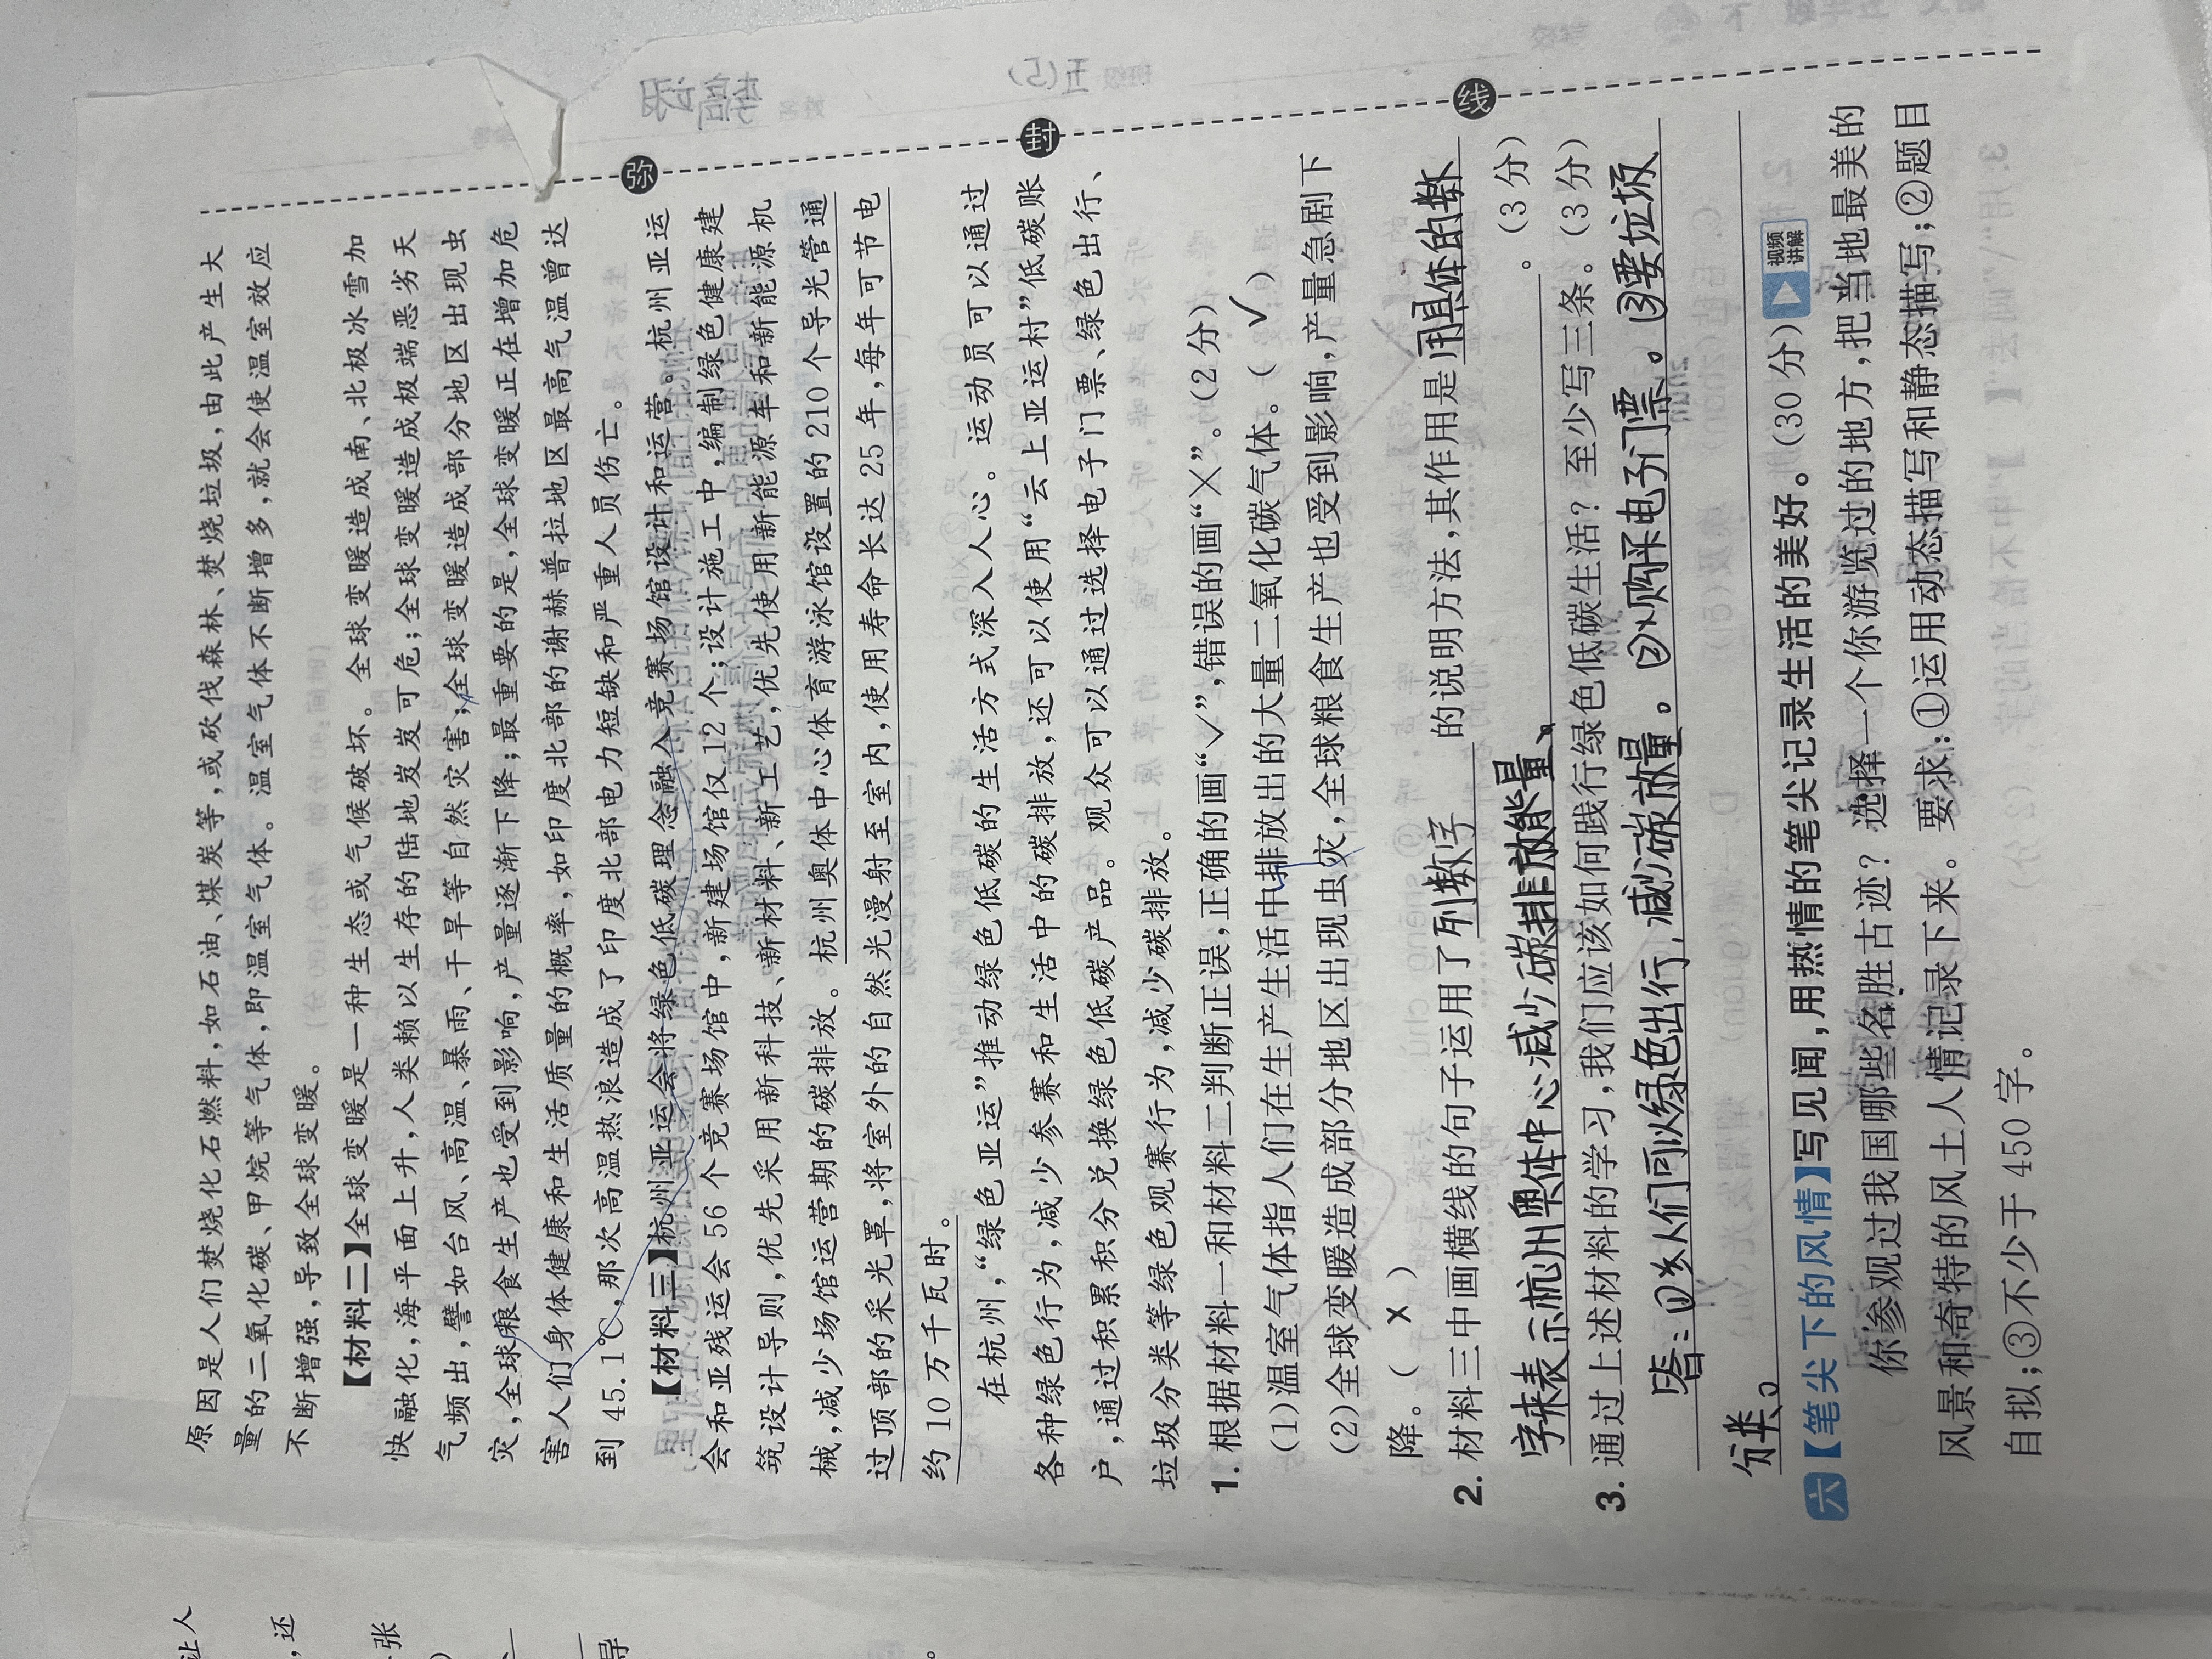 原因是人们焚烧化石燃料,如石油、煤炭等,或砍伐森林、焚烧垃圾,由此产生大
量的二氧化碳、甲烷等气体,即温室气体。温室气体不断增多,就会使温室效应
不断增强,导致全球变暖。
【材料二】全球变暖是一种生态或气候破坏。全球变暖造成南、北极冰雪加
快融化,海平面上升,人类赖以生存的陆地岌岌可危;全球变暖造成极端恶劣天
气频出,譬如台风、高温、暴雨、干旱等自然灾害;全球变暖造成部分地区出现虫
灾,全球粮食生产也受到影响,产量逐渐下降;最重要的是,全球变暖正在增加危
害人们身体健康和生活质量的概率,如印度北部的谢赫普拉地区最高气温曾达
到 45.1℃,那次高温热浪造成了印度北部电力短缺和严重人员伤亡。
【材料三】杭州亚运会将绿色低碳理念融入竞赛场馆设计和运营。杭州亚运
会和亚残运会 56 个竞赛场馆中,新建场馆仅 12 个;设计施工中,编制绿色健康建
筑设计导则,优先采用新科技、新材料、新工艺,优先使用新能源车和新能源机
械,减少场馆运营期的碳排放。杭州奥体中心体育游泳馆设置的 210 个导光管通
过顶部的采光罩,将室外的自然光漫射至室内,使用寿命长达 25 年,每年可节电
约 10 万千瓦时。
在杭州,“绿色亚运”推动绿色低碳的生活方式深入人心。运动员可以通过
各种绿色行为,减少参赛和生活中的碳排放,还可以使用“云上亚运村”低碳账
户,通过积累积分兑换绿色低碳产品。观众可以通过选择电子门票、绿色出行、
垃圾分类等绿色观赛行为,减少碳排放。
1. 根据材料一和材料二判断正误,正确的画“✓”,错误的画“×”。(2 分)
(1)温室气体指人们在生产生活中排放出的大量二氧化碳气体。( ✓ )
(2)全球变暖造成部分地区出现虫灾,全球粮食生产也受到影响,产量急剧下
降。( × )
2. 材料三中画横线的句子运用了 列数字 的说明方法,其作用是 用具体的数
字来表示杭州奥体中心减少碳排放能量。 。(3 分)
3. 通过上述材料的学习,我们应该如何践行绿色低碳生活?至少写三条。(3 分)
答:①人们可以绿色出行,减少碳放量。②购买电子门票。③要垃圾
分类。
六【笔尖下的风情】写见闻,用热情的笔尖记录生活的美好。(30 分)
视频
讲解
你参观过我国哪些名胜古迹?选择一个你游览过的地方,把当地最美的
风景和奇特的风土人情记录下来。要求:①运用动态描写和静态描写;②题目
自拟;③不少于 450 字。
弥
封
线
让人
,还
张
导